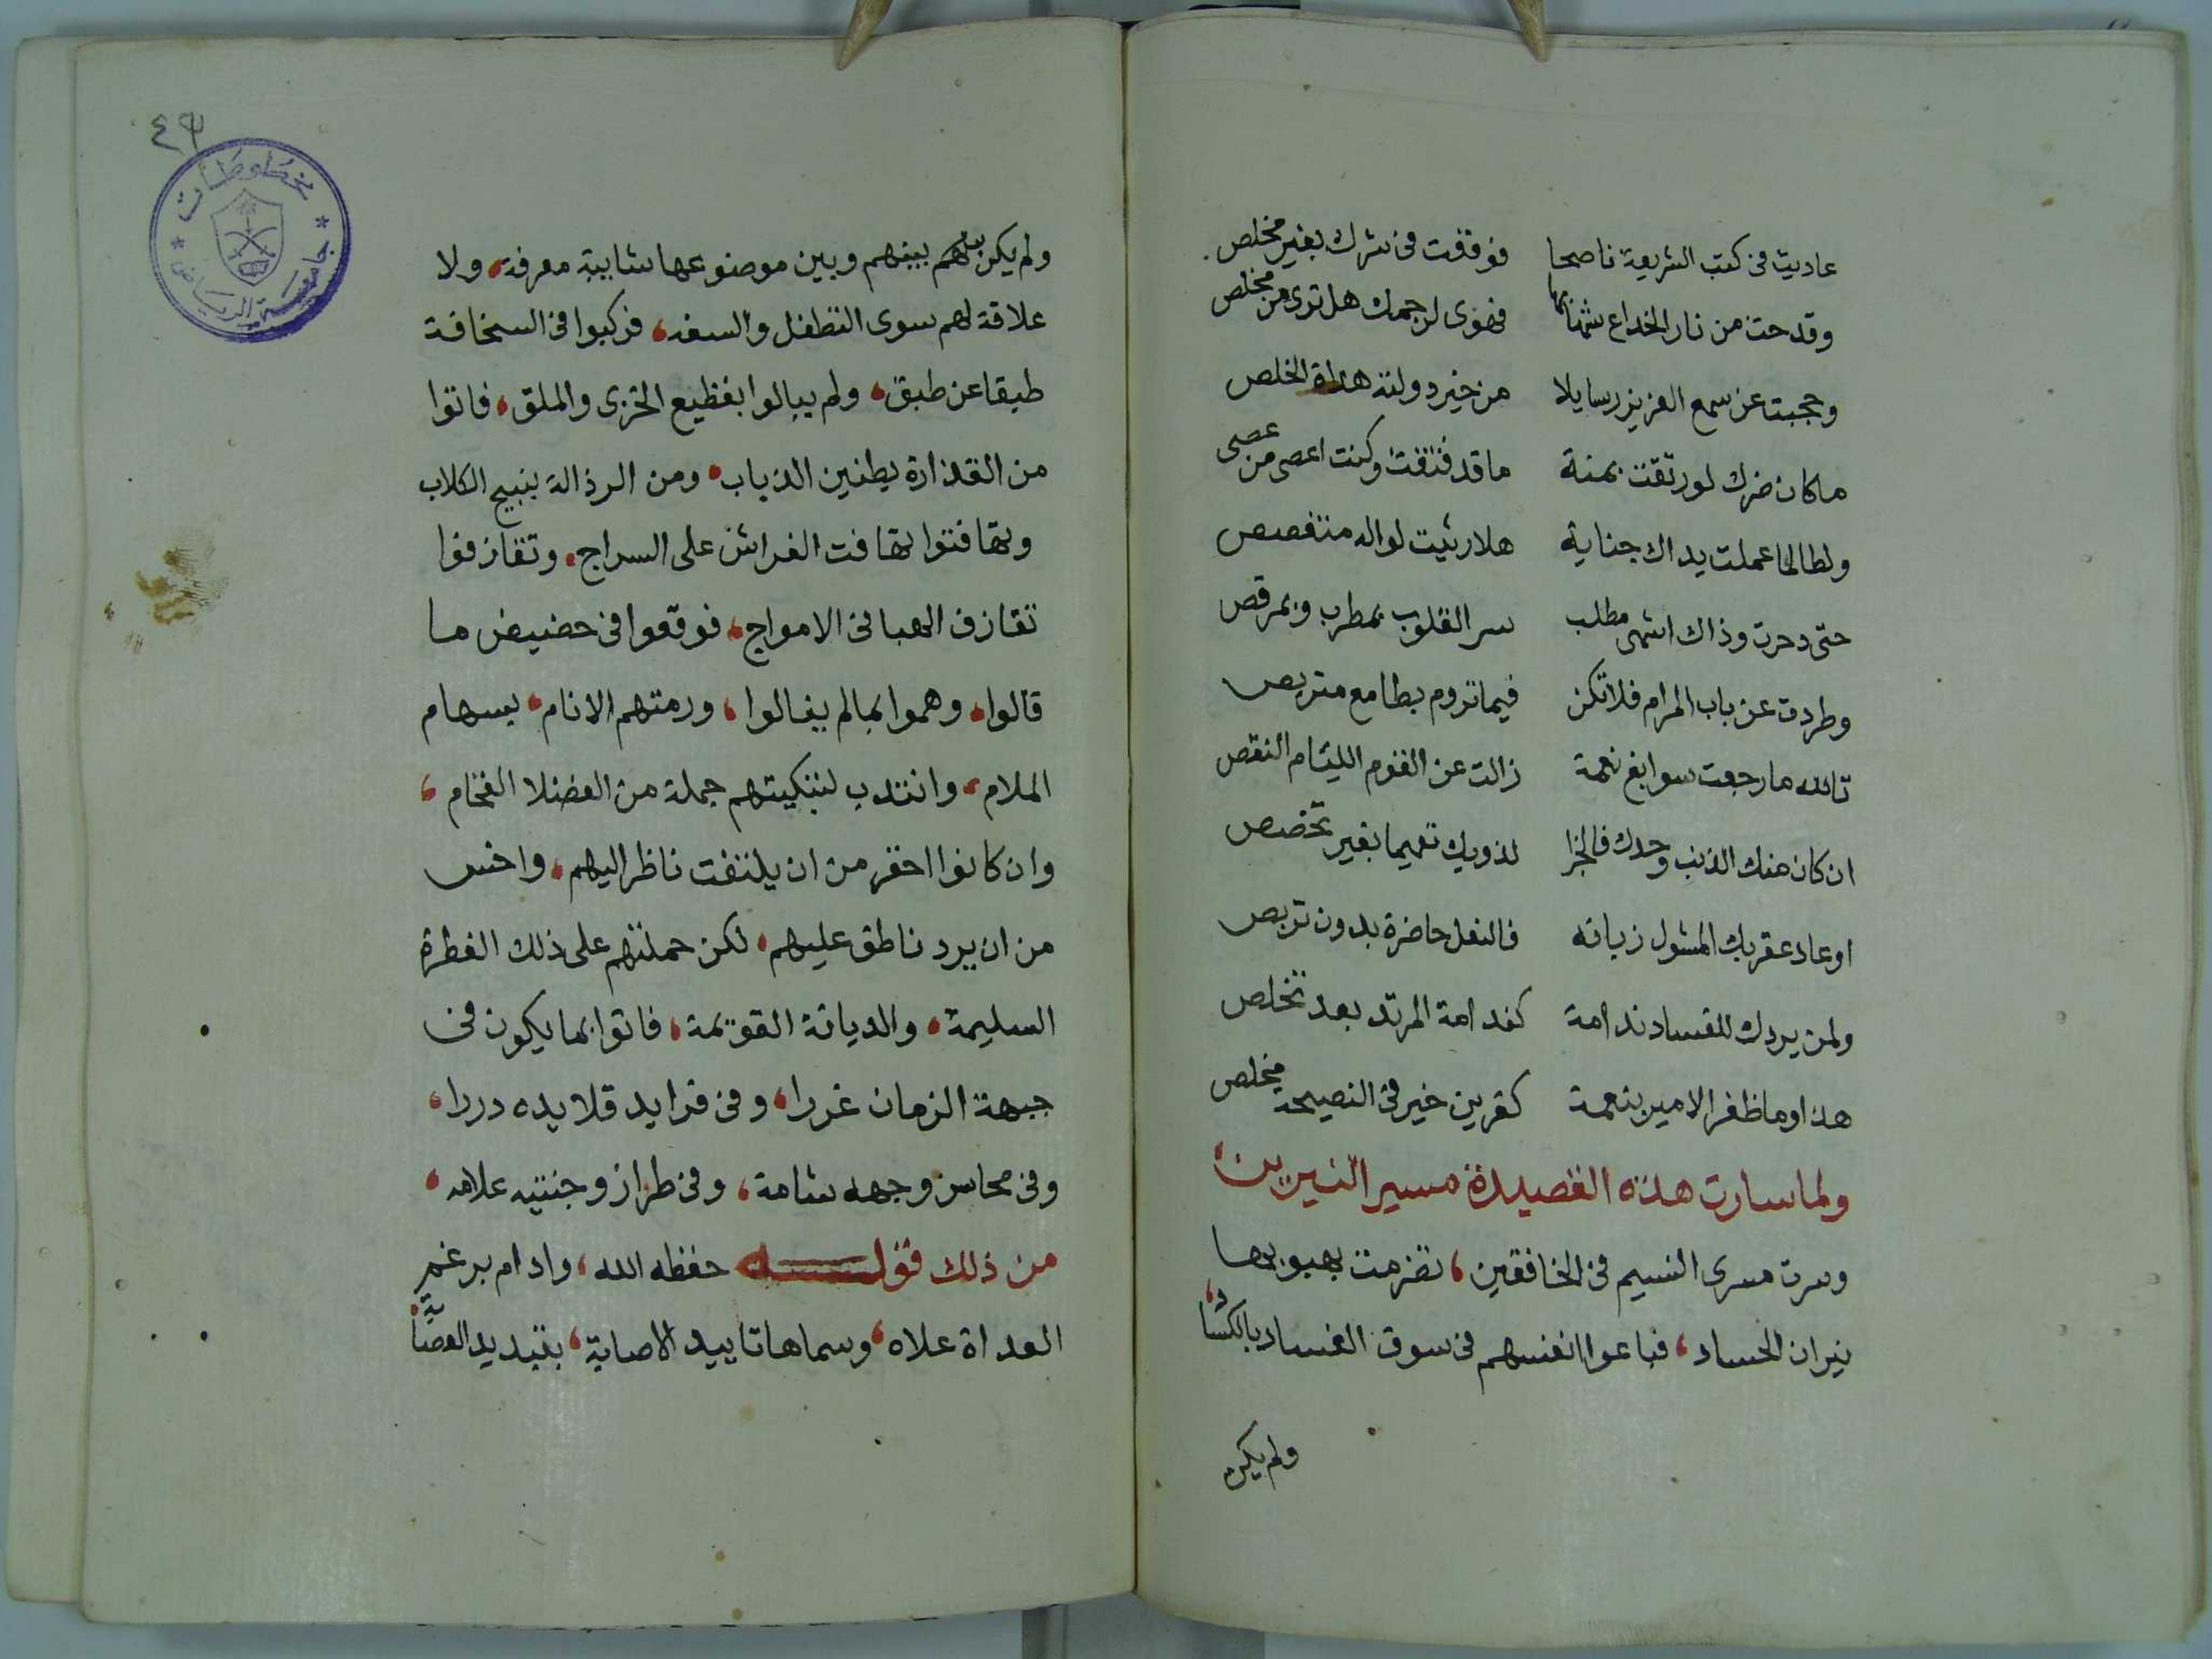 عاديت فى كتب الشريعة ناصحا فوقفت فى شرك بغير مخلص
وقدحت من نار الخداع شهابها فهوى لرجمك هل ترى من مخلص
وحجبت عن سمع العزيز رسايلا من خير دولته هداة الخلص
ماكان ضرك لو رتقت بمنة ما قد فتقت وكنت اعصى من عصى
ولطالما عملت يداك جناية هلا رثيت لواله متغصص
حتى دحرت وذاك اشهى مطلب سر القلوب بمطرب وبمرقص
وطردت عن باب المرام فلا تكن فيما تروم بطامع متربص
تالله ما رجعت سوابغ نعمة زالت عن القوم الليئام النقص
ان كان منك الذنب وحدك فالجزا لذويك تعميما بغير تخصص
او عاد عقربك المشول زبانه فالنعل حاضرة بدون تربص
ولمن يردك للفساد ندامة كندامة المرتد بعد تخلص
هذا وما ظفر الامير بنعمة كقرين خير فى النصيحة مخلص
ولما سارت هذه القصيدة مسير النيرين،
وسرت مسرى النسيم فى الخافقين، تضرمت بهبوبها
نيران الحساد، فباعوا انفسهم فى سوق الفساد بالكساد،
ولم يكن
٤٣
مخطوطات
جامعة الرياض
ولم يكن بينهم وبين موضوعها شايبة معرفة، ولا
علاقة لهم سوى التطفل والسفه، فركبوا فى السخافة
طبقا عن طبق، ولم يبالوا بفظيع الخزى والملق، فاتوا
من القذارة بطنين الذباب، ومن الرذالة بنبيح الكلاب
وتهافتوا تهافت الفراش على السراج، وتقاذفوا
تقاذف الهبا فى الامواج، فوقعوا فى حضيض ما
قالوا، وهموا بما لم ينالوا، ورمتهم الانام، بسهام
الملام، وانتدب لتبكيتهم جملة من الفضلا الفخام،
وان كانوا احقر من ان يلتفت ناظر اليهم، واخس
من ان يرد ناطق عليهم، لكن حملتهم على ذلك الفطرة
السليمة، والديانة القويمة، فاتوا بما يكون فى
جبهة الزمان غررا، وفى فرايد قلايده دررا،
وفى محاسن وجهه شامة، وفى طراز وجنتيه علامه،
من ذلك قولـــه حفظه الله، وادام برغم
العداة علاه، وسماها تاييد الاصابة، بتبديد العصابة،